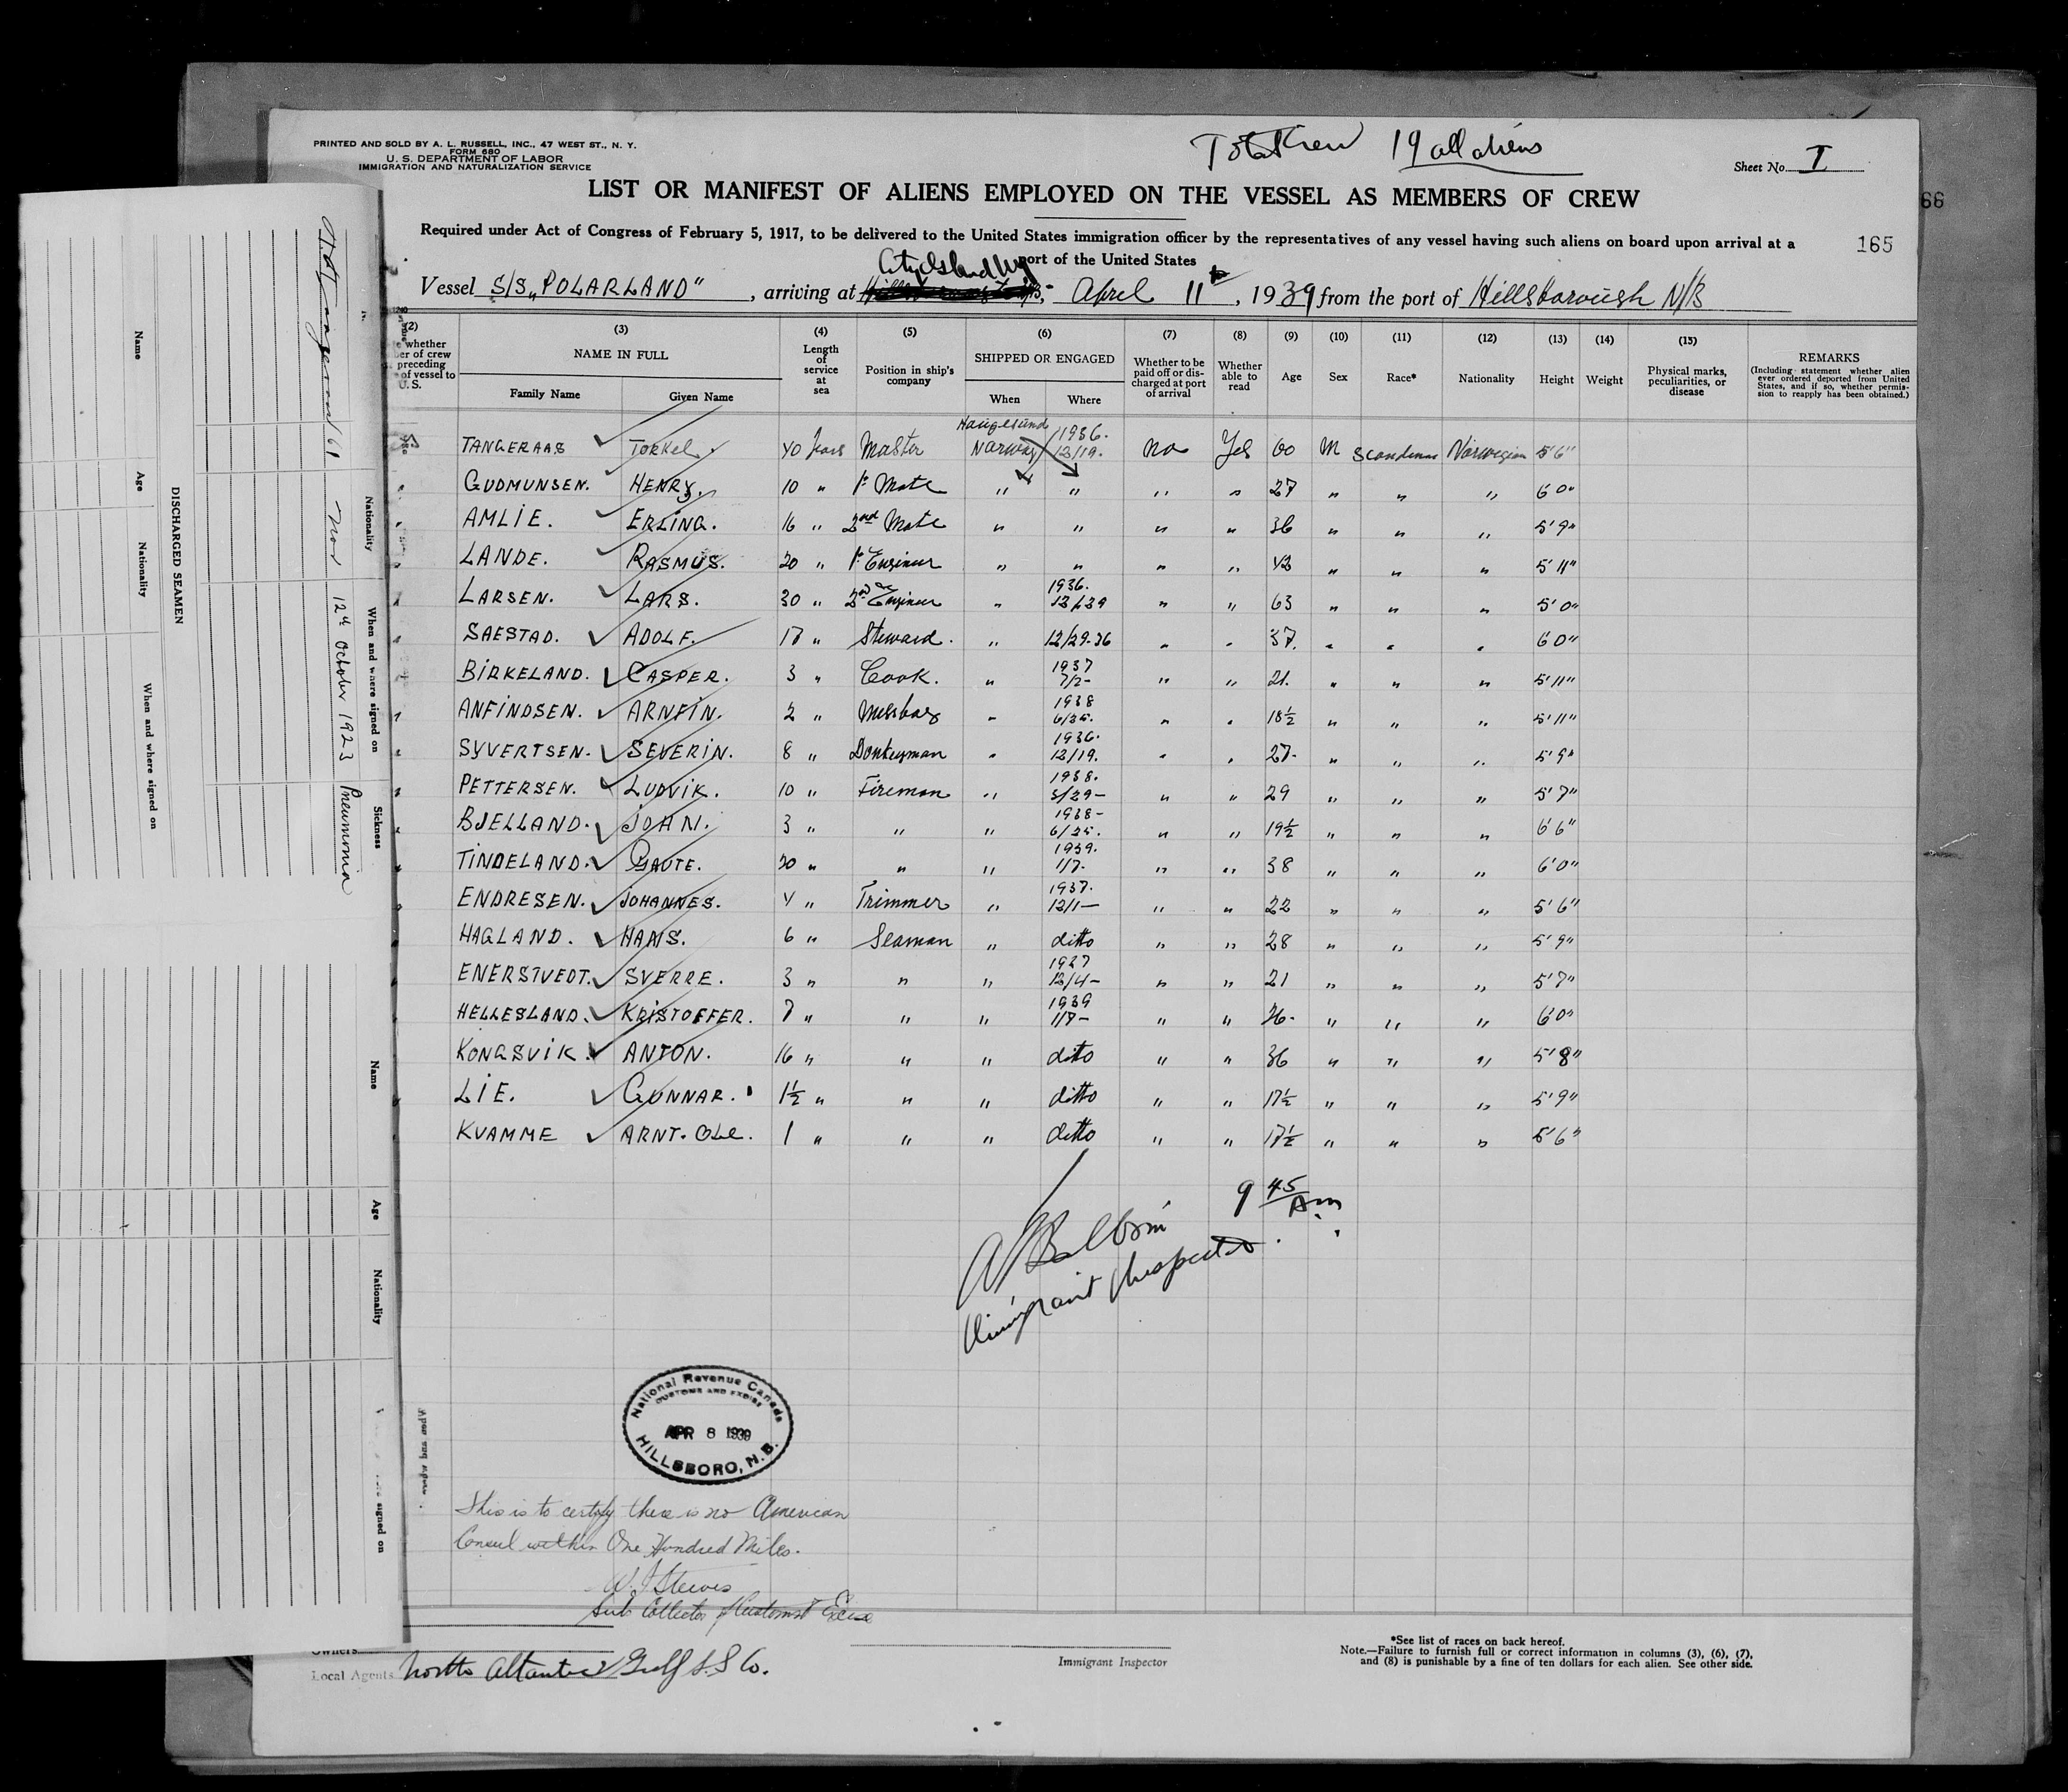 PRINTED AND SOLD BY A. L. RUSSELL, INC., 47 WEST ST., N. Y.
FORM 680
U. S. DEPARTMENT OF LABOR
IMMIGRATION AND NATURALIZATION SERVICE
Total Crew 19 all aliens
Sheet No. I
LIST OR MANIFEST OF ALIENS EMPLOYED ON THE VESSEL AS MEMBERS OF CREW
66
Required under Act of Congress of February 5, 1917, to be delivered to the United States immigration officer by the representatives of any vessel having such aliens on board upon arrival at a
165
port of the United States
City Island NY
Vessel S/S „POLARLAND", arriving at April 11th, 1939 from the port of Hillsborough N/B
(2) (3) (4) (5) (6) (7) (8) (9) (10) (11) (12) (13) (14) (15)
whether
er of crew
preceding
of vessel to
U. S.
NAME IN FULL
Family Name Given Name
Length of service at sea
Position in ship's company
SHIPPED OR ENGAGED
When Where
Whether to be paid off or discharged at port of arrival
Whether able to read
Age Sex Race* Nationality Height Weight
Physical marks, peculiarities, or disease
REMARKS
(Including statement whether alien ever ordered deported from United States, and if so, whether permission to reapply has been obtained.)
TANGERAAS TORKEL. 40 years Master Haugesund Norway 1936. 12/19. no Yes 60 M Scandinav Norwegian 5'6"
GUDMUNSEN. HENRY. 10 " 1st Mate " " " " 27 " " " 6'0"
AMLIE. ERLING. 16 " 2nd Mate " " " " 36 " " " 5'9"
LANDE. RASMUS. 20 " 1st Engineer " " " " 43 " " " 5'11"
LARSEN. LARS. 30 " 2nd Engineer " 1936. 12/29 " " 63 " " " 5'0"
SAESTAD. ADOLF. 17 " Steward. " 12/29-36 " " 37. " " " 6'0"
BIRKELAND. CASPER. 3 " Cook. " 1937 7/2- " " 21. " " " 5'11"
ANFINDSEN. ARNFIN. 2 " Messboy " 1938 6/25. " " 18½ " " " 5'11"
SYVERTSEN. SEVERIN. 8 " Donkeyman " 1936. 12/19. " " 27. " " " 5'9"
PETTERSEN. LUDVIK. 10 " Fireman " 1938. 3/29- " " 29 " " " 5'7"
BJELLAND. JOHN. 3 " " " 1938- 6/25. " " 19½ " " " 6'6"
TINDELAND. GAUTE. 20 " " " 1939. 1/7. " " 38 " " " 6'0"
ENDRESEN. JOHANNES. 4 " Trimmer " 1937. 12/1- " " 22 " " " 5'6"
HAGLAND. HANS. 6 " Seaman " ditto " " 28 " " " 5'9"
ENERSTVEDT. SVERRE. 3 " " " 1937 12/4- " " 21 " " " 5'7"
HELLESLAND. KRISTOFFER. 7 " " " 1939 1/7- " " 26. " " " 6'0"
KONGSVIK. ANTON. 16 " " " ditto " " 36 " " " 5'8"
LIE. GUNNAR. 1½ " " " ditto " " 17½ " " " 5'9"
KVAMME ARNT. OLE. 1 " " " ditto " " 17½ " " " 5'6"
9 45 Am
Immigrant Inspector.
National Revenue Canada
CUSTOMS AND EXCISE
APR 8 1939
HILLSBORO, N. B.
This is to certify there is no American
Consul within One Hundred Miles.
W. J Steeves
Sub Collector of Customs & Excise
Owners
Local Agents North Atlantic & Gulf S. S Co.
Immigrant Inspector
*See list of races on back hereof.
Note.—Failure to furnish full or correct information in columns (3), (6), (7),
and (8) is punishable by a fine of ten dollars for each alien. See other side.
DISCHARGED SEAMEN
Name Age Nationality When and where signed on
Nationality When and where signed on Sickness
61 Nor 12th October 1923 Pneumonia
Name Age Nationality signed on